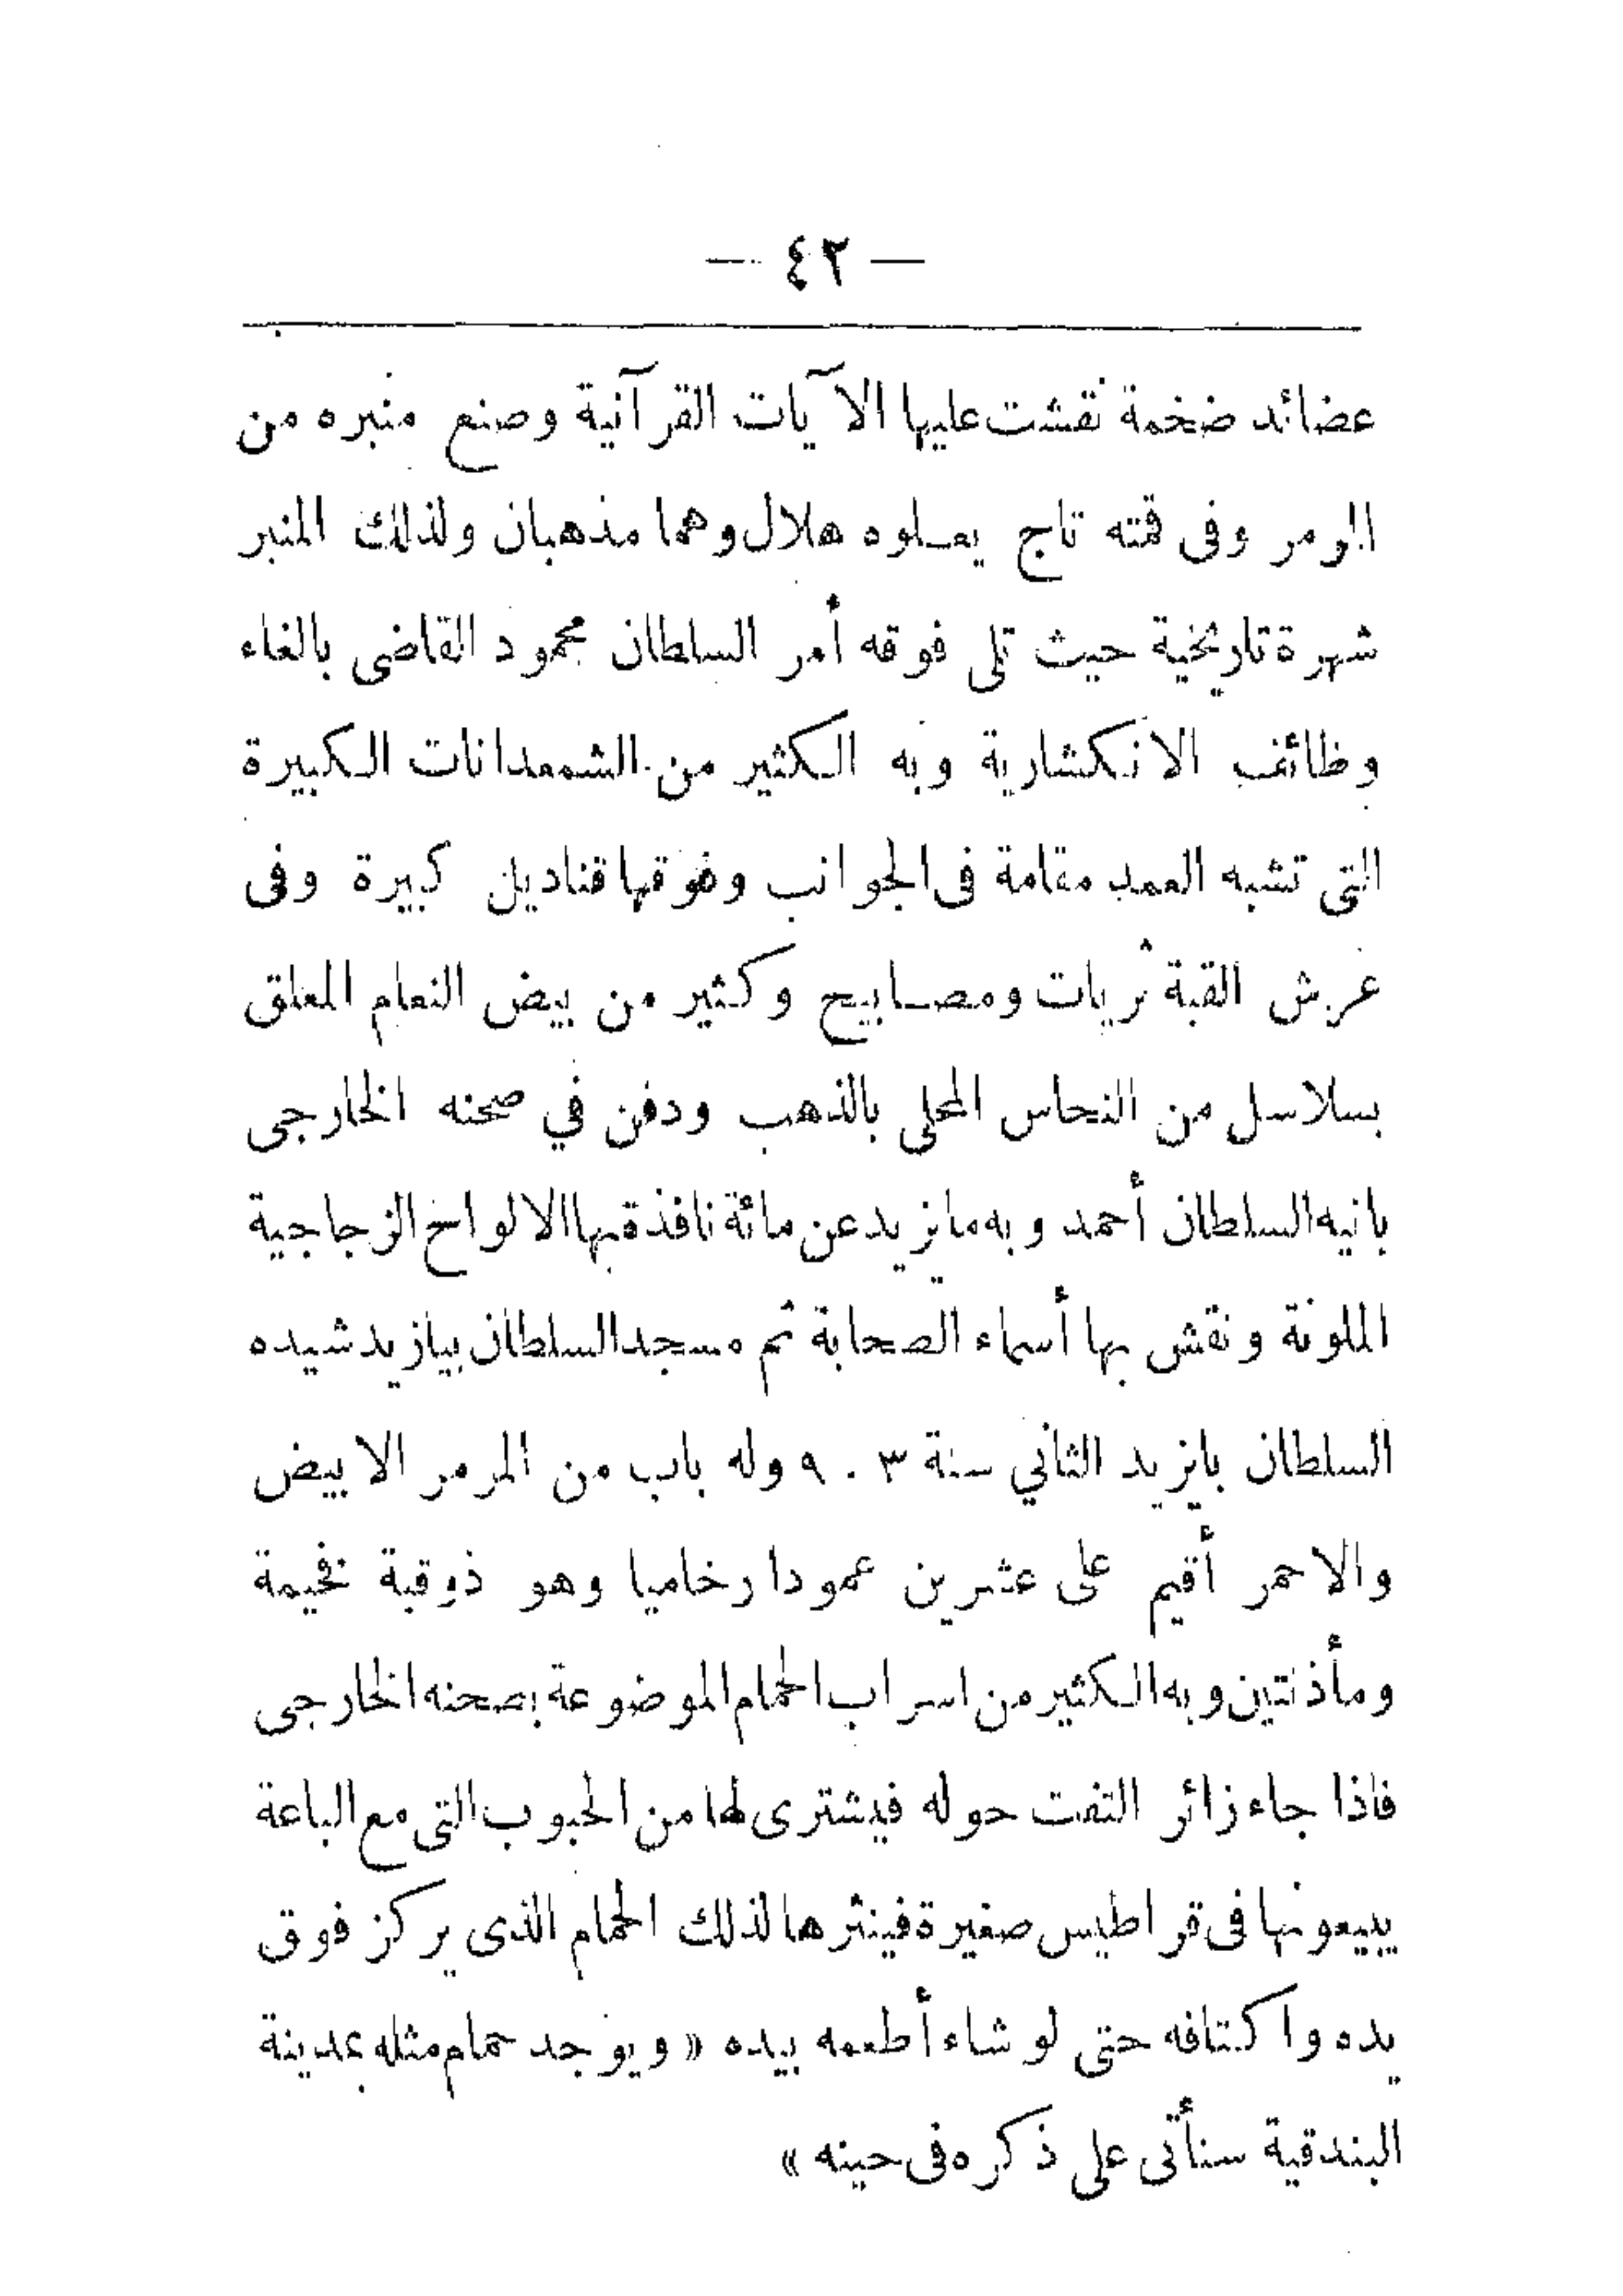 — ٤٢ —
عضائد ضخمة نقشت عليها الآيات القرآنية وصنع منبره من
المرمر وفى قمته تاج يعلوه هلال وهما مذهبان ولذلك المنبر
شهرة تاريخية حيث تلى فوقه أمر السلطان محمود القاضى بالغاء
وظائف الانكشارية وبه الكثير من الشمعدانات الكبيرة
التى تشبه العمد مقامة فى الجوانب وفوقها قناديل كبيرة وفى
عرش القبة ثريات ومصابيح وكثير من بيض النعام المعلق
بسلاسل من النحاس المحلى بالذهب ودفن في صحنه الخارجى
بانيه السلطان أحمد وبه مايزيد عن مائة نافذة بها الالواح الزجاجية
الملونة ونقش بها أسماء الصحابة ثم مسجد السلطان بيازيد شيده
السلطان بايزيد الثاني سنة ٩٠٣ وله باب من المرمر الابيض
والاحمر أقيم على عشرين عمودا رخاميا وهو ذو قبة فخيمة
ومأذنتين وبه الكثير من اسراب الحمام الموضوعة بصحنه الخارجى
فاذا جاء زائر التفت حوله فيشترى لها من الحبوب التى مع الباعة
يبيعونها فى قراطيس صغيرة فينثرها لذلك الحمام الذى يركز فوق
يده واكتافه حتى لو شاء أطعمه بيده « ويوجد حمام مثله بمدينة
البندقية سنأتى على ذكره فى حينه »